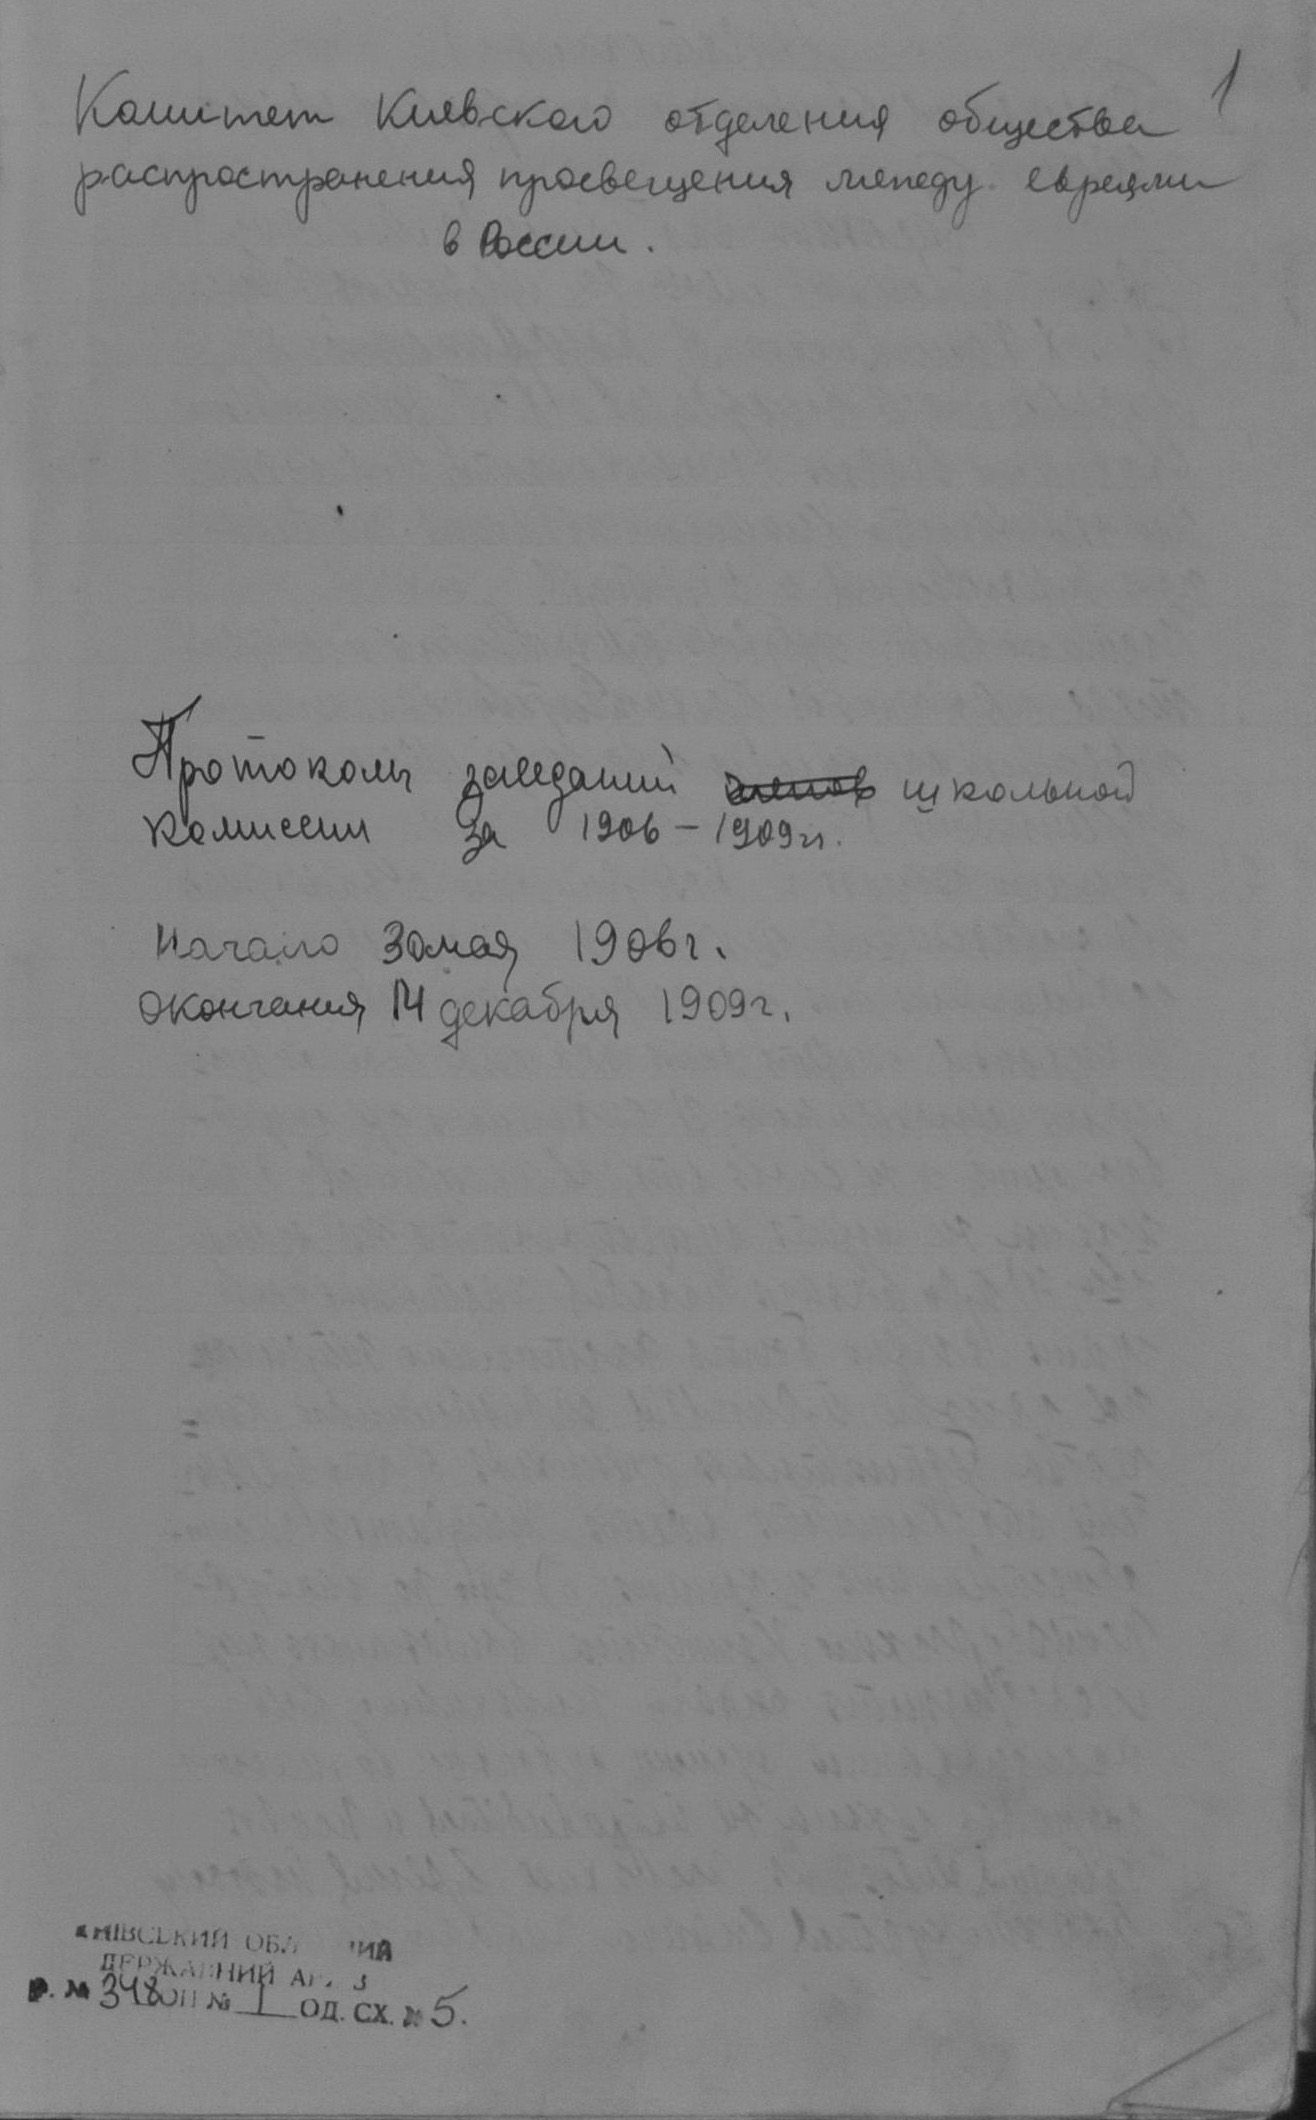 1
Комитет Киевского отделения общества
распространения просвещения между евреями
в России.
Протоколы заседаний членов школьной
комиссии за 1906-1909гг.
Начало 30 мая 1906г.
Окончания 14 декабря 1909г.
КИЇВСЬКИЙ ОБЛ
ДЕРЖАВНИЙ АР
Ф. № 348 ОП № 1 ОД. СХ. № 5.